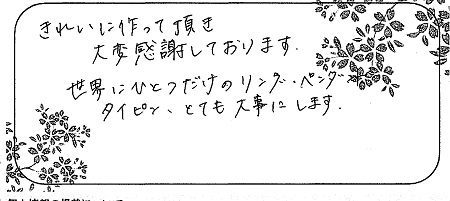 きれいに作って頂き
大変感謝しております.
世界にひとつだけのリング、ペンダ
タイピン、とても大事にします.